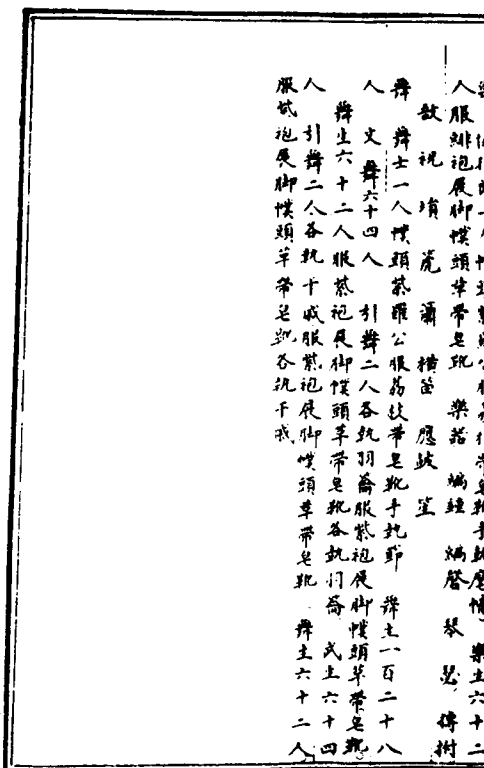 樂生六十二
人服緋袍展脚幞頭革帶皂靴 樂器 編鐘 編磬 琴 瑟 搏拊
敔 柷 塤 篪 簫 橫笛 應鼓 笙
舞 舞士一人幞頭紫羅公服荔枝帶皂靴手執節 舞生一百二十八
人 文舞六十四人 引舞二人各執羽籥服紫袍展脚幞頭革帶皂靴
舞生六十二人服紫袍展脚幞頭革帶皂靴各執羽籥 武生六十四
人 引舞二人各執干戚服紫袍展脚幞頭革帶皂靴 舞生六十二人
服袍展脚幞頭革帶皂靴各執干戚